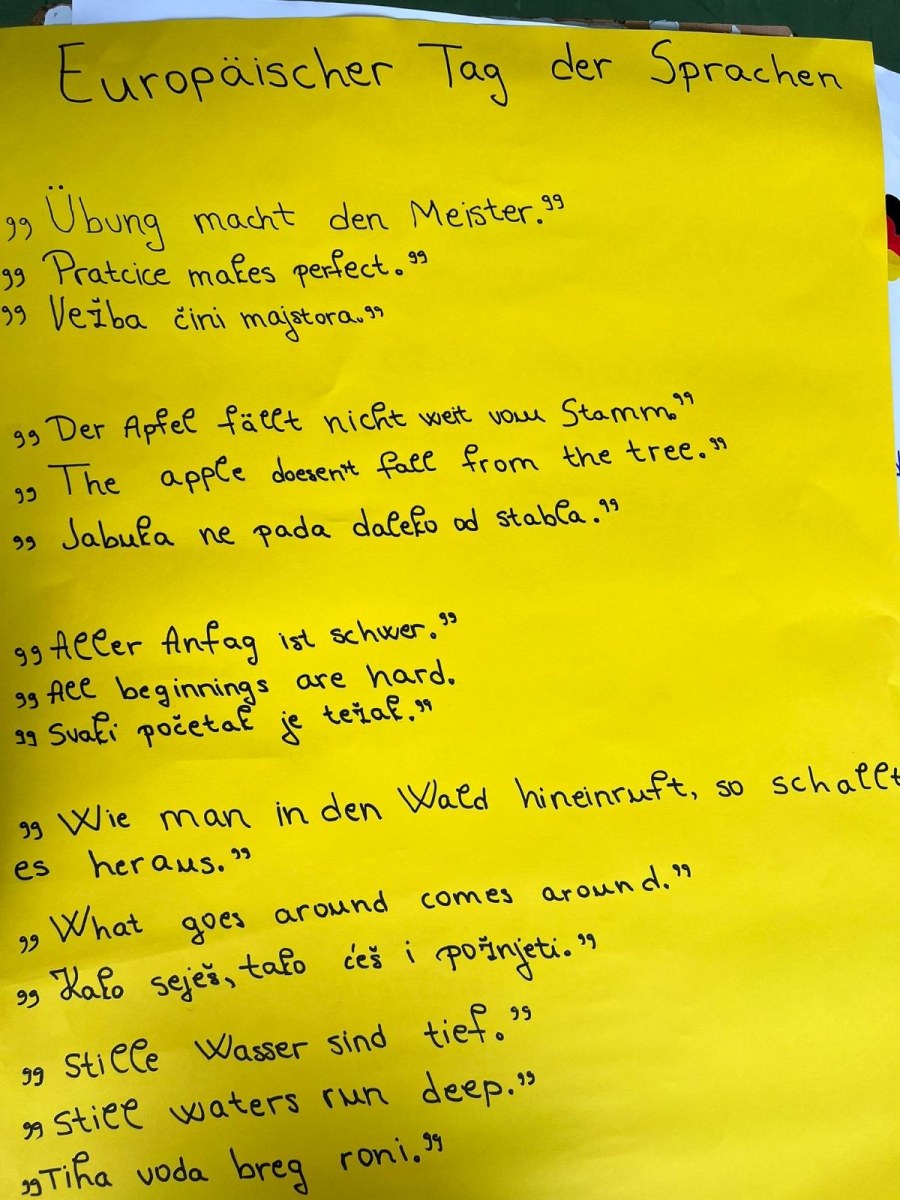 Europäischer Tag der Sprachen
„Übung macht den Meister.”
„Pratcice makes perfect.”
„Vežba čini majstora.”
„Der Apfel fällt nicht weit vom Stamm.”
„The apple doesen't fall from the tree.”
„Jabuka ne pada daleko od stabla.”
„Aller Anfag ist schwer.”
„All beginnings are hard.
„Svaki početak je težak.”
„Wie man in den Wald hineinruft, so schallt
es heraus.”
„What goes around comes around.”
„Kako seješ, tako ćeš i požnjeti.”
„Stille Wasser sind tief.”
„Still waters run deep.”
„Tiha voda breg roni.”